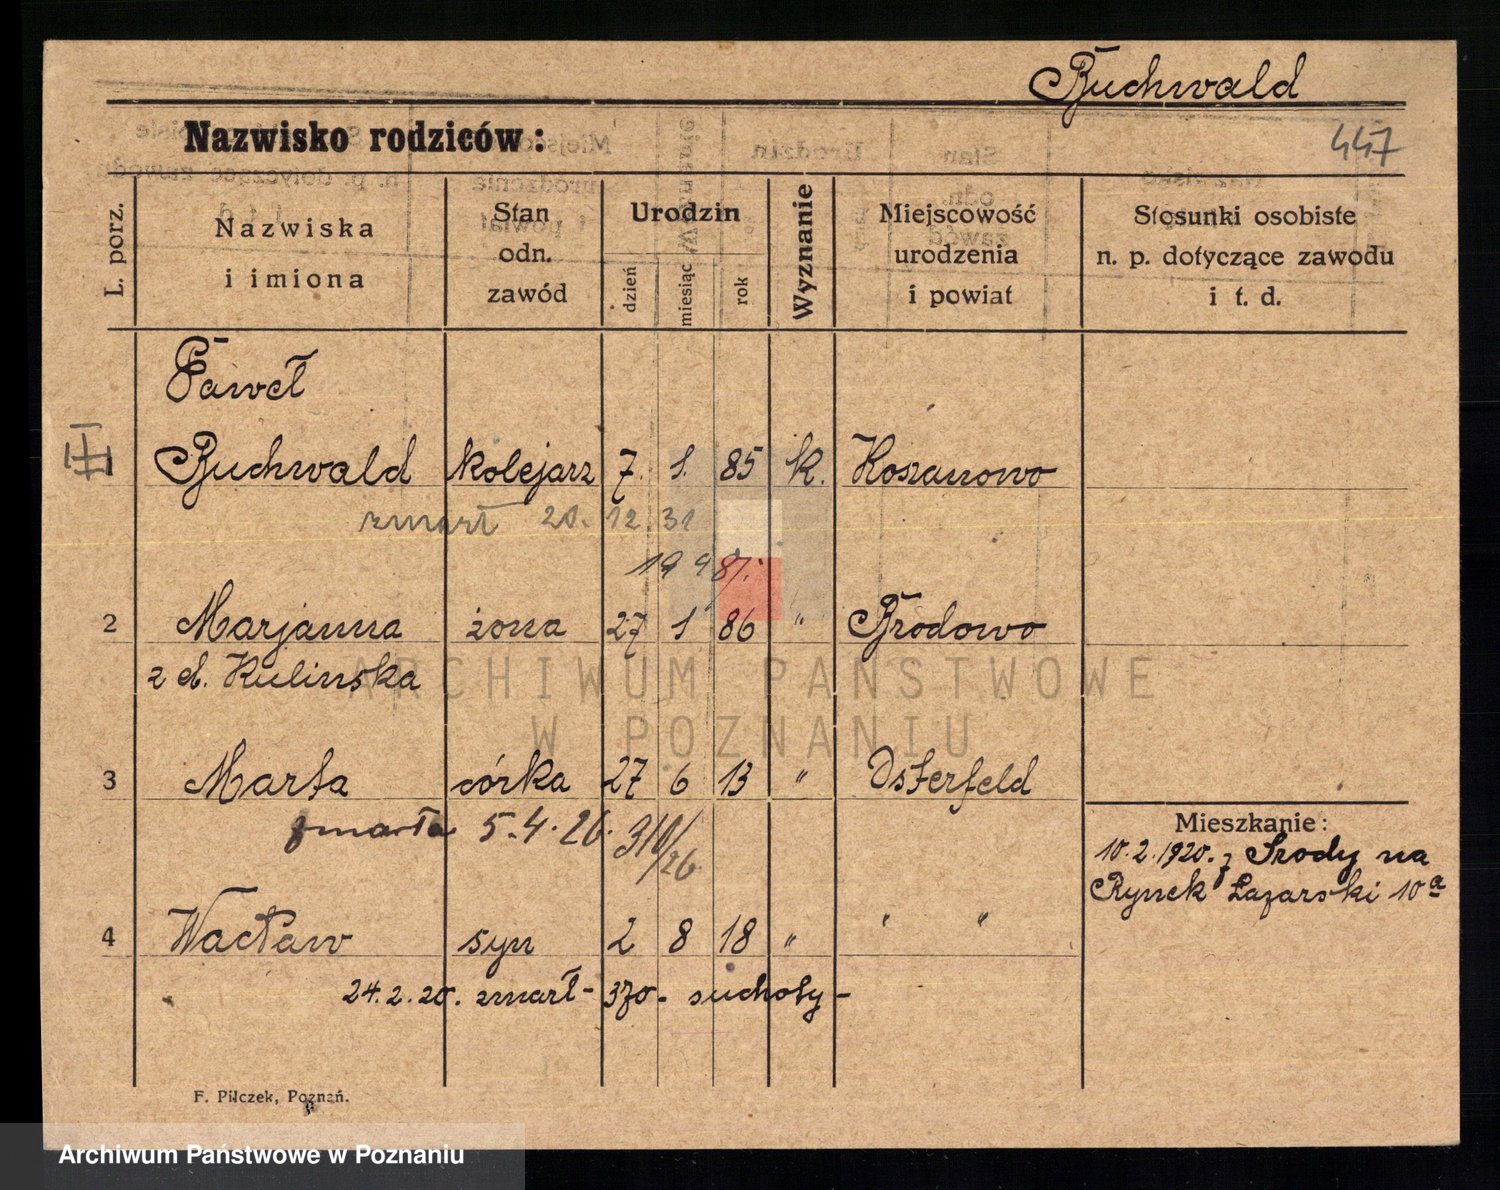 Buchwald
Nazwisko rodziców:
447
L. porz.
Nazwiska
i imiona
Stan
odn.
zawód
Urodzin
dzień
miesiąc
rok
Wyznanie
Miejscowość
urodzenia
i powiat
Stosunki osobiste
n. p. dotyczące zawodu
i t. d.
Paweł
Buchwald kolejarz 7. 1. 85 k. Koszanowo
zmarł 20. 12. 31
2 Marjanna żona 27 1 86 " Brodowo
z d. Kulinska
ARCHIWUM PAŃSTWOWE
W POZNANIU
3 Marta córka 27 6 13 " Osterfeld
zmarła 5.4.26.
Mieszkanie:
10.2.1920. z Srody na
Rynek Łazarski 10a
4 Wacław syn 2 8 18 " " "
24.2.20. zmarł - 370 - suchoty -
F. Pilczek, Poznań.
Archiwum Państwowe w Poznaniu